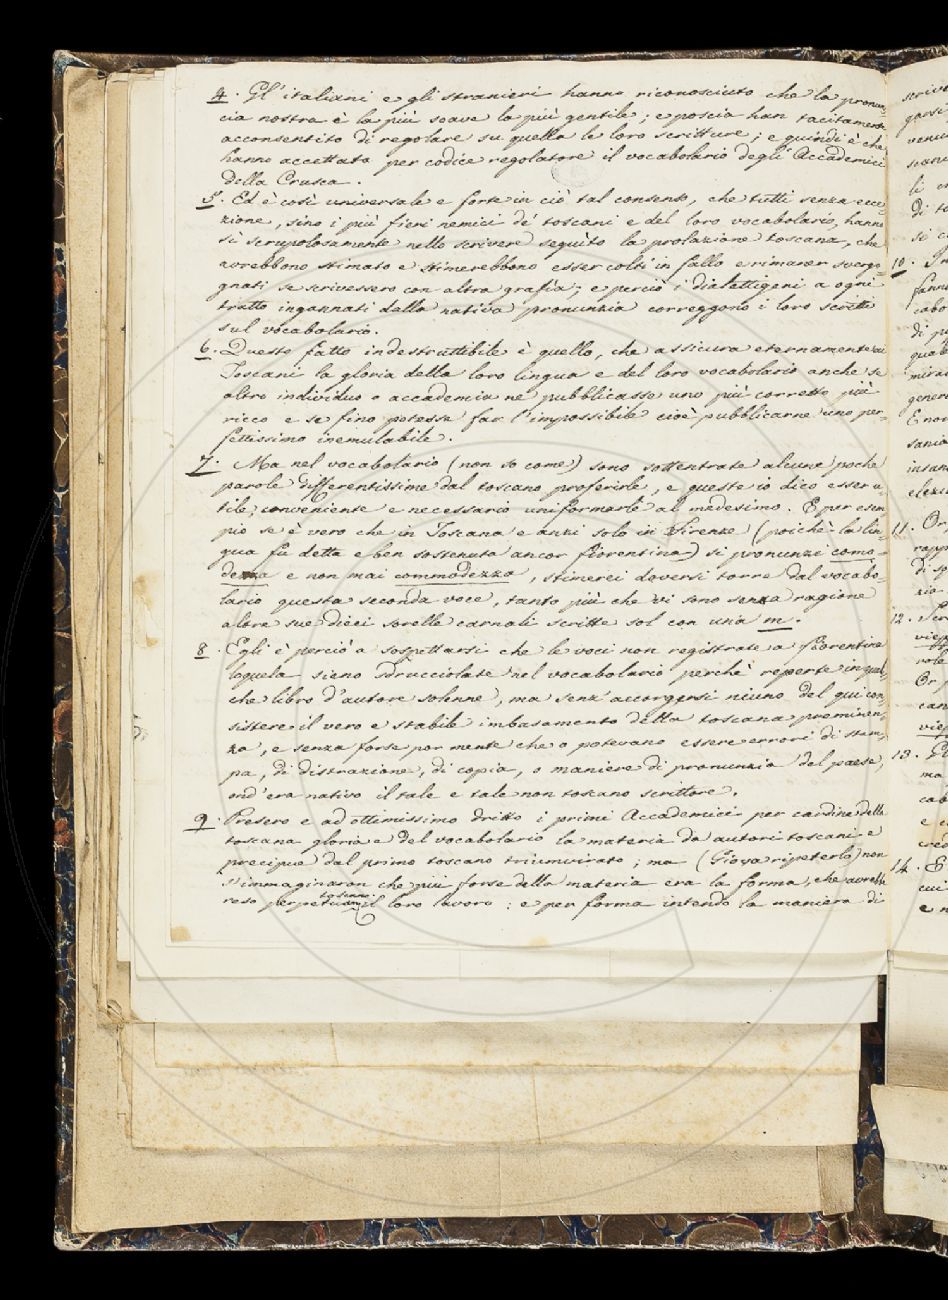 4. Gl'italiani e gli stranieri hanno riconosciuto che la pronun=
cia nostra è la più soave la più gentile; e poscia han tacitamente
acconsentito di regolare su quella le loro scritture; e quindi è che
hanno accettato per codice regolatore il vocabolario degli Accademici
della Crusca.
5. Ed è così universale e forte in ciò tal consenso, che tutti senza ecce=
zione, sino i più fieri nemici de' toscani e del loro vocabolario, hanno
sì scrupolosamente nello scrivere seguìto la prolazione toscana, che
avrebbono stimato e stimerebbono esser colti in fallo e rimaner svergo=
gnati se scrivessero con altra grafìa; e perciò i dialettigeni a ogni
tratto ingannati della nativa pronunzia correggono i loro scritti
sul vocabolario.
6. Questo fatto indestruttibile è quello, che assicura eternamente ai
Toscani la gloria della loro lingua e del loro vocabolario anche se
altro individuo o accademia ne pubblicasse uno più corretto più
ricco e se fino potesse far l'impossibile cioè pubblicarne uno per=
fettissimo inemulabile.
7. Ma nel vocabolario (non so come) sono sottentrate alcune poche
parole differentissime dal toscano proferirle, e queste io dico esser u=
tile, conveniente e necessario uniformarle al medesimo. E per esem=
pio se è vero che in Toscana e anzi solo in Firenze (poichè la lin=
gua fu detta e ben sostenuta ancor fiorentina) si pronunzi como=
dezza e non mai commodezza, stimerei doversi torre dal vocabo=
lario questa seconda voce, tanto più che vi sono senza ragione
altre sue dieci sorelle carnali scritte sol con una m.
8. Egli è perciò a sospettarsi che le voci non registrate a fiorentina
loquela sieno sdrucciolate nel vocabolario perchè reperte in qual=
che libro d'autore solenne, ma senz'accorgersi niuno del qui con=
sistere il vero e stabile imbasamento della toscana preminen=
za, e senza forse por mente che o potevano essere errori di stam=
pa, di distrazione, di copia, o maniere di pronunzia del paese,
ond'era nativo il tale e tale non toscano scrittore.
9. Presero e ad ottimissimo dritto i primi Accademici per cardine della
toscana gloria e del vocabolario la materia da autori toscani e
precipua dal primo toscano triumvirato; ma (giova ripeterlo) non
s'immaginaron che più forse della materia era la forma, che avrebbe
reso perpetuam. toscano il loro lavoro: e per forma intendo la maniera di
scrive
garsi
venu
li
di to
si c
10. In
fann
cabo
di p
qual
mirab
gener
E non
sania
intan
11. Or
rapp
di sp
zia
12. Scri
viep
role
Or p
can
viep
13.
ma
cab
e c
14. E
cui
e n